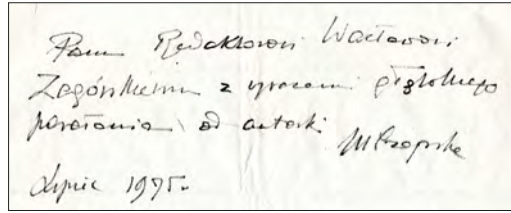 Panu Redaktorowi Wacławowi
Zagórskiemu z wyrazami głębokiego
poważania od autorki
Lipiec 1975.